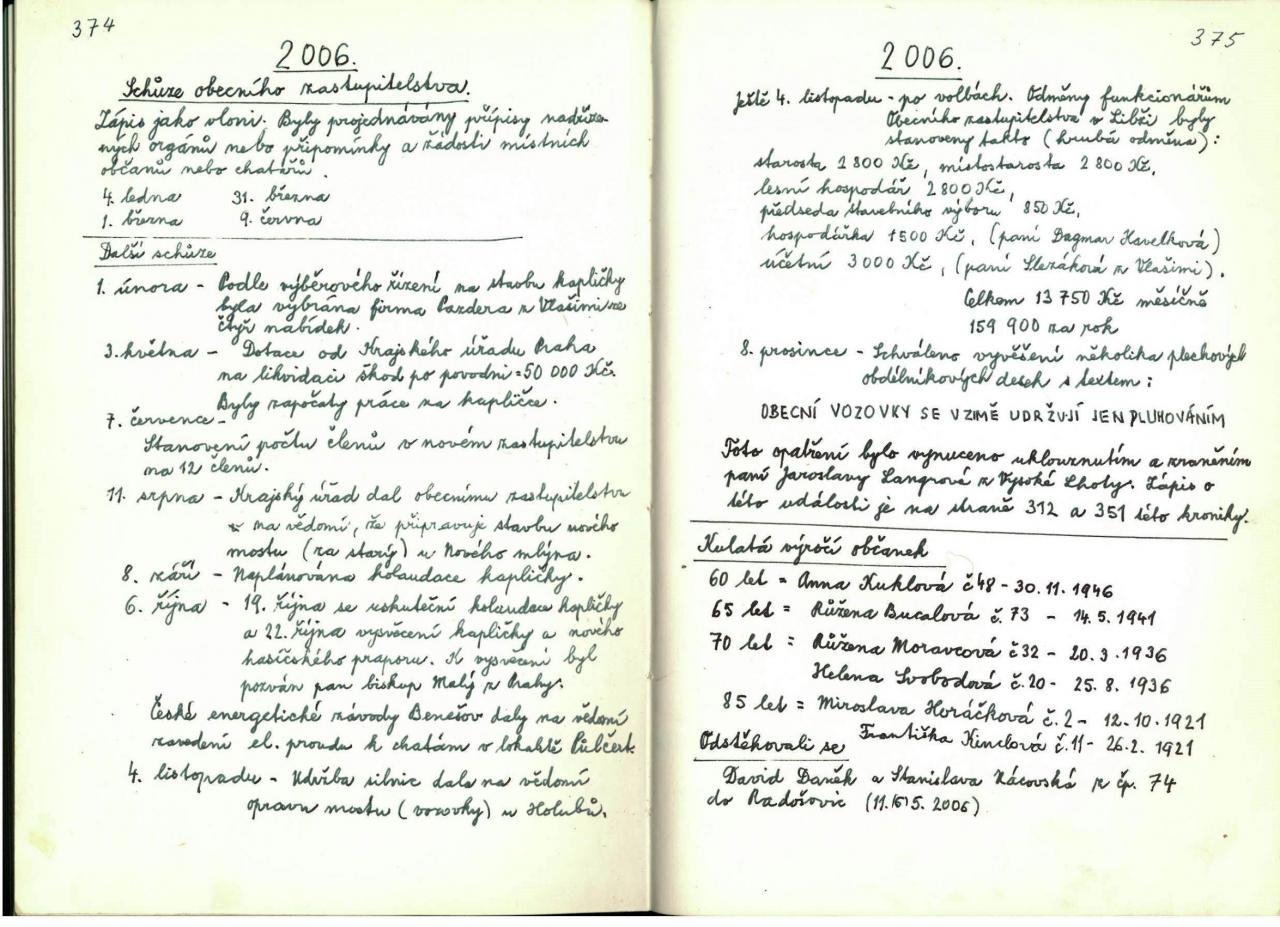 374
2006.
Schůze obecního zastupitelstva.
Zápis jako vloni. Byly projednávány přípisy nadříze-
ných orgánů nebo připomínky a žádosti místních
občanů nebo chatařů.
4. ledna 31. března
1. března 9. června
Další schůze
1. února - Podle výběrového řízení na stavbu kapličky
byla vybrána firma Pazdera z Vlašimi ze
čtyř nabídek.
3. května - Dotace od Krajského úřadu Praha
na likvidaci škod po povodni = 50 000 Kč.
Byly započaty práce na kapličce.
7. července -
Stanovení počtu členů v novém zastupitelstvu
na 12 členů.
11. srpna - Krajský úřad dal obecnímu zastupitelstvu
na vědomí, že připravuje stavbu nového
mostu (za starý) u Nového mlýna.
8. září - Naplánována kolaudace kapličky.
6. října - 19. října se uskuteční kolaudace kapličky
a 22. října vysvěcení kapličky a nového
hasičského praporu. K vysvěcení byl
pozván pan biskup Malý z Prahy.
České energetické závody Benešov daly na vědomí
zavedení el. proudu k chatám v lokalitě Půlčert.
4. listopadu - Údržba silnic dala na vědomí
opravu mostu (vozovky) u Holubů.
375
2006.
Ještě 4. listopadu - po volbách. Odměny funkcionářům
Obecního zastupitelstva v Libži byly
stanoveny takto (hrubá odměna):
starosta 2 800 Kč, místostarosta 2 800 Kč,
lesní hospodář 2 800 Kč,
předseda stavebního výboru 850 Kč,
hospodářka 1500 Kč, (paní Dagmar Havelková)
účetní 3 000 Kč, (paní Slezáková z Vlašimi).
Celkem 13 750 Kč měsíčně
159 900 za rok
8. prosince - Schváleno vyvěšení několika plechových
obdélníkových desek s textem:
OBECNÍ VOZOVKY SE V ZIMĚ UDRŽUJÍ JEN PLUHOVÁNÍM
Toto opatření bylo vynuceno uklouznutím a zraněním
paní Jaroslavy Langrová z Vysoké Lhoty. Zápis o
této události je na straně 312 a 351 této kroniky.
Kulatá výročí občanek
60 let = Anna Kuklová č. 48 - 30. 11. 1946
65 let = Růžena Bucalová č. 73 - 14. 5. 1941
70 let = Růžena Moravcová č 32 - 20. 3. 1936
Helena Svobodová č. 20 - 25. 8. 1936
85 let = Miroslava Horáčková č. 2 - 12. 10. 1921
Františka Kinclová č. 11 - 26. 2. 1921
Odstěhovali se
David Daněk a Stanislava Zácovská z čp. 74
do Radošovic (11. 5. 2006)